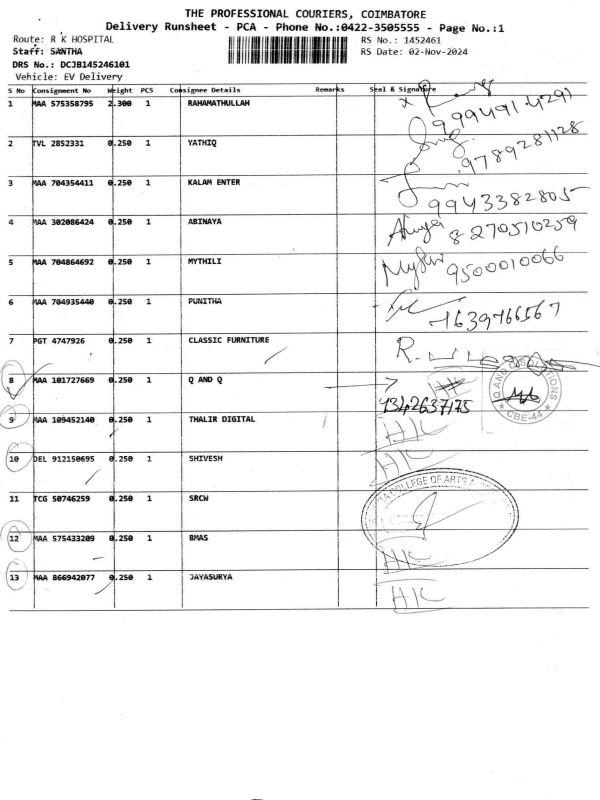 THE PROFESSIONAL COURIERS, COIMBATORE
Delivery Runsheet - PCA - Phone No.:0422-3505555 - Page No.:1
Route: R K HOSPITAL RS No.: 1452461
Staff: SANTHA RS Date: 02-Nov-2024
DRS No.: DCJB145246101
Vehicle: EV Delivery
S No Consignment No Weight PCS Consignee Details Remarks Seal & Signature
1 MAA 575358795 2.300 1 RAHAMATHULLAH
9994914291
2 TVL 2852331 0.250 1 YATHIQ
9789281128
3 MAA 704354411 0.250 1 KALAM ENTER
9943382805
4 MAA 302086424 0.250 1 ABINAYA
8270510259
5 MAA 704864692 0.250 1 MYTHILI
9500010066
6 MAA 704935440 0.250 1 PUNITHA
7 PGT 4747926 0.250 1 CLASSIC FURNITURE
R.
8 MAA 101727669 0.250 1 Q AND Q
CBE-44
9 MAA 109452140 0.250 1 THALIR DIGITAL
H/C
10 DEL 912150695 0.250 1 SHIVESH
H/C
11 TCG 50746259 0.250 1 SRCW
COLLEGE OF ARTS
12 MAA 575433209 0.250 1 BMAS
H/C
13 MAA 866942077 0.250 1 JAYASURYA
H/C